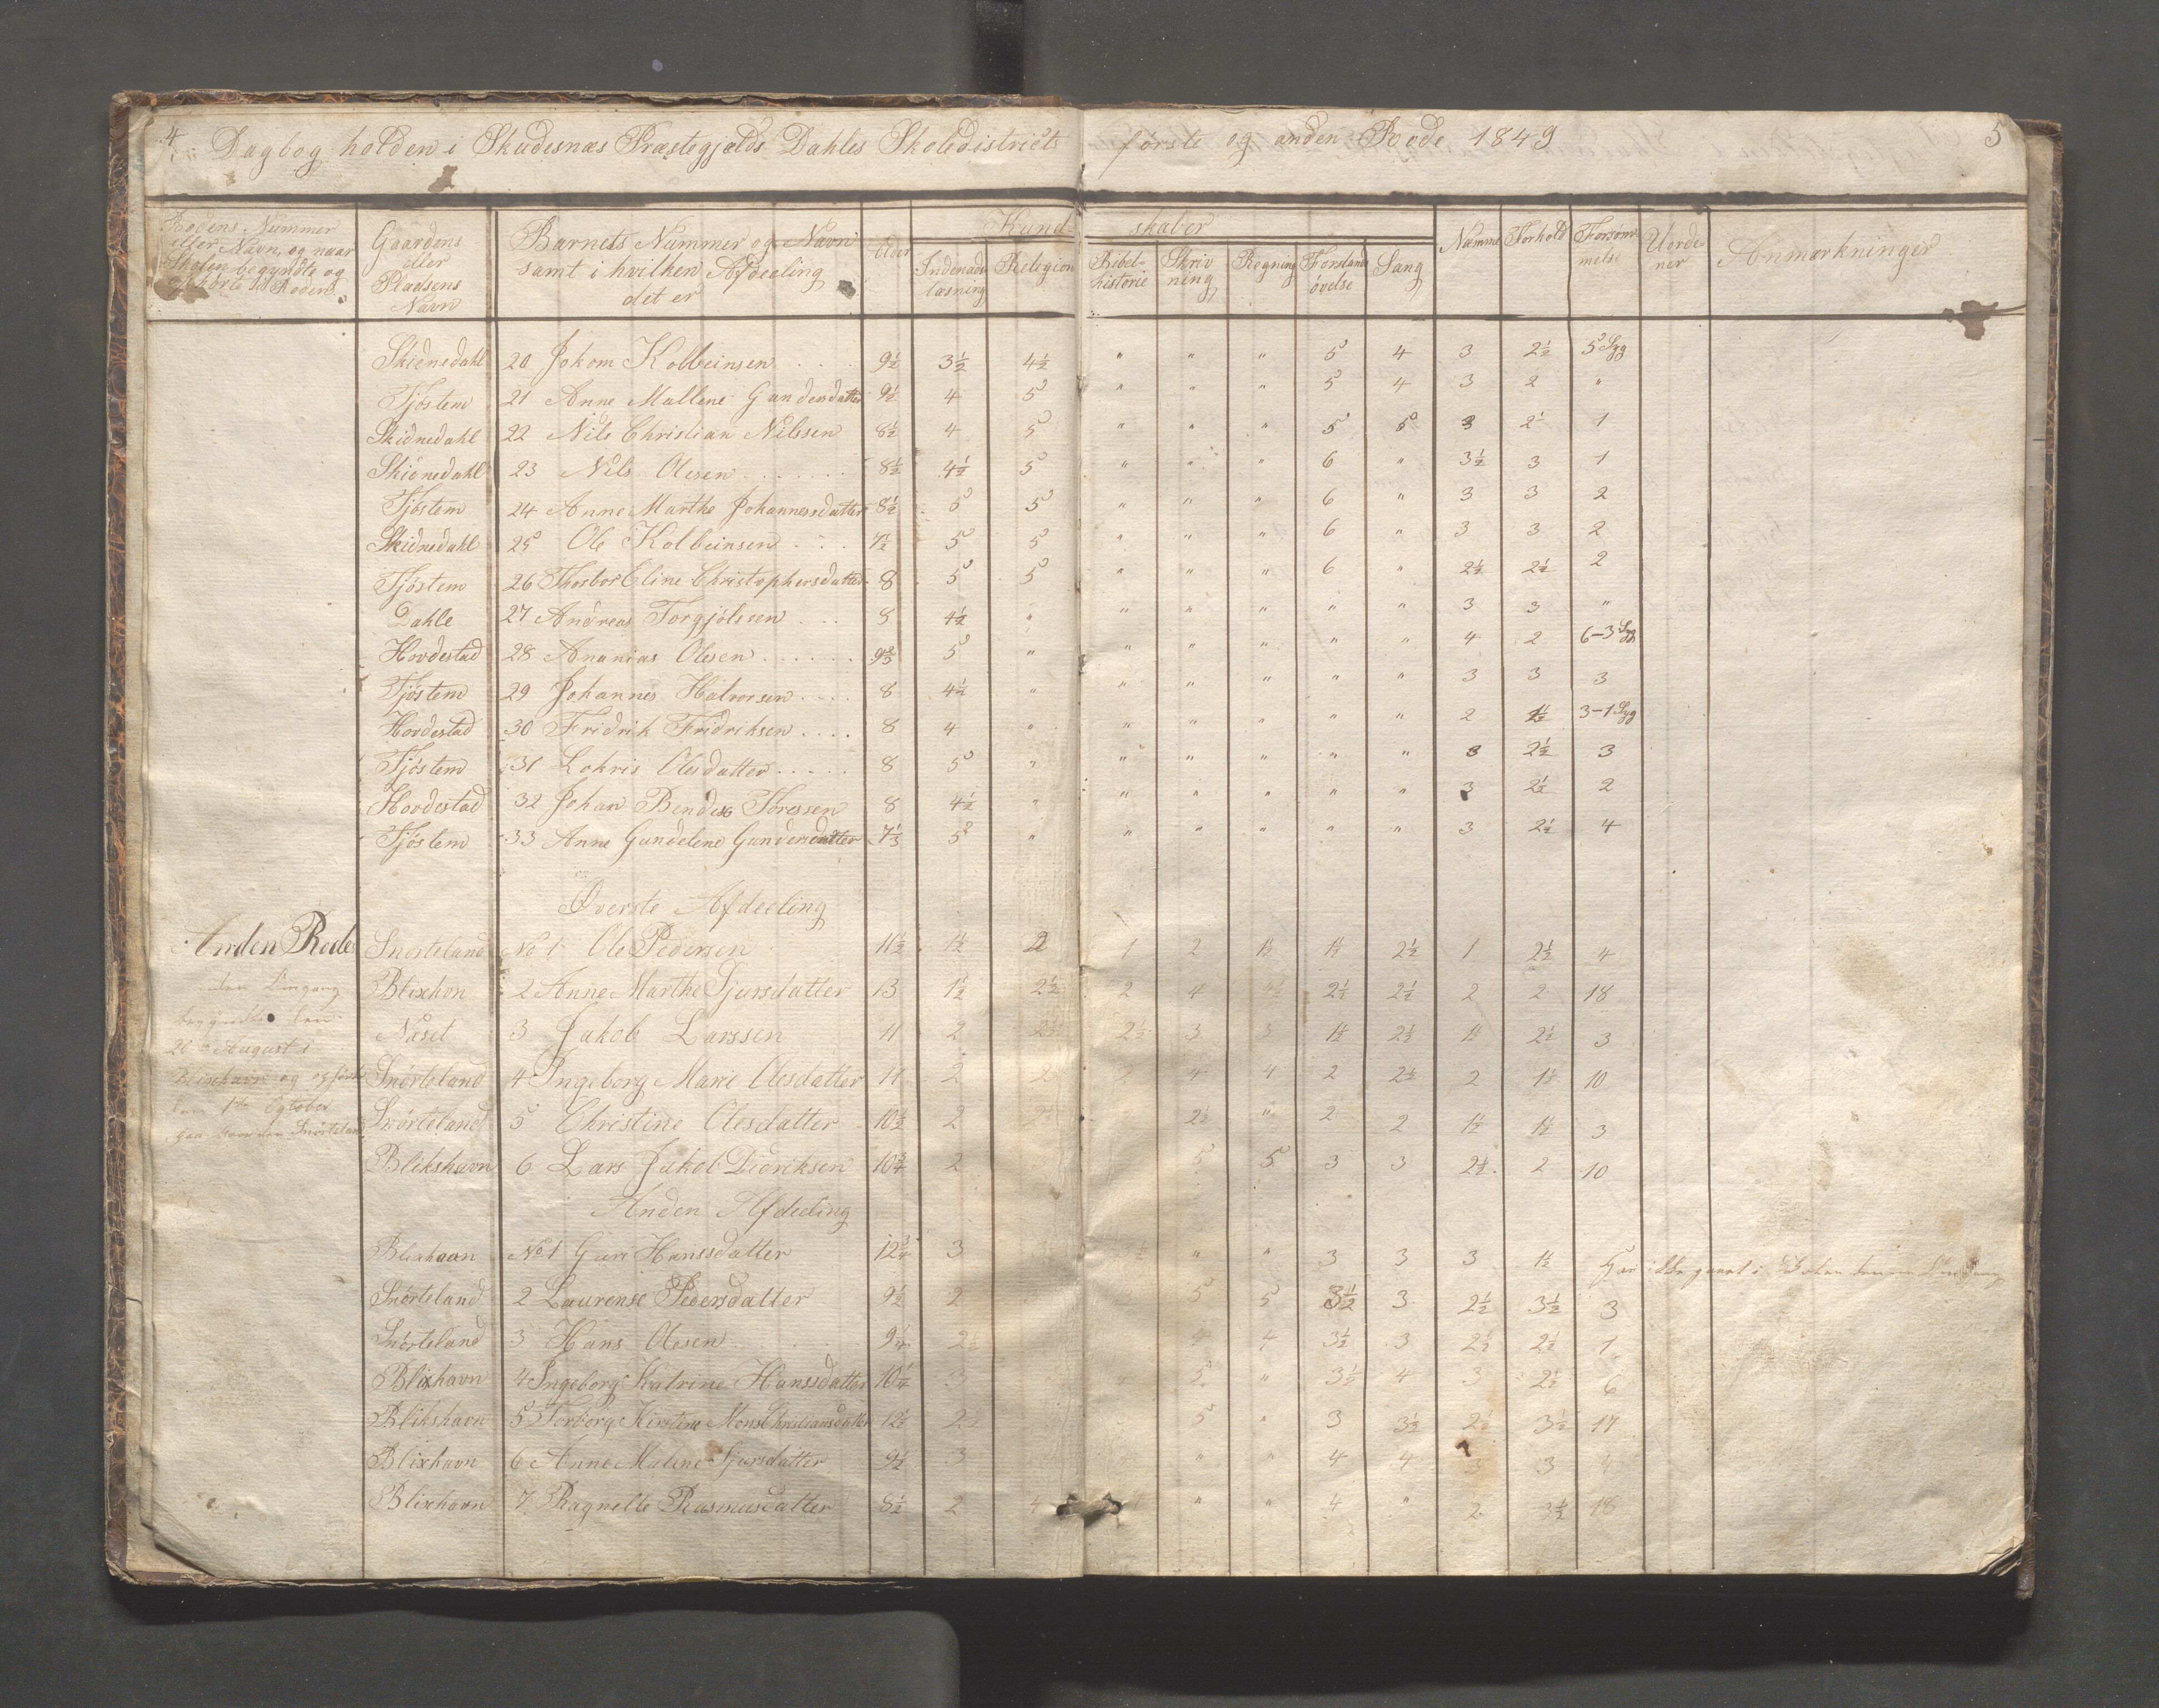 4 Dagbog holden i Skudesnæs Præstegjælds Dahles Skoledistricts første og anden Rode 1849 5
Rodens Nummer eller Navn, og naar Skolen begyndte og ophørte i Roden. | Gaardens eller Pladsens Navn | Barnets Nummer og Navn samt i hvilken Afdeeling det er | Alder | Kundskaber: Indenadlæsning | Religion | Bibelhistorie | Skrivning | Regning | Forstandsøvelse | Sang | Næmme | Forhold | Forsømmelse | Uordener | Anmærkninger
Skidnedahl 20 Jokom Kolbeinsen 9½ 3½ 4½ " " " 5 4 3 2½ 5 Syg
Tjøstem 21 Anne Mallene Gundersdatter 9½ 4 5 " " " 5 4 3 2 "
Skidnedahl 22 Nils Christian Nilssen 8½ 4 5 " " " 5 5 3 2½ 1
Skidnedahl 23 Nils Olesen 8½ 4½ 5 " " " 6 " 3½ 3 1
Tjøstem 24 Anne Marthe Johannessdatter 8½ 5 5 " " " 6 " 3 3 2
Skidnedahl 25 Ole Kolbeinsen 7½ 5 5 " " " 6 " 3 3 2
Tjøstem 26 Thosbor Eline Christophersdatter 8 5 5 " " " 6 " 2½ 2½ 2
Dahle 27 Andreas Torgjølssen 8 4½ " " " " " " 3 3 "
Hovdestad 28 Ananias Olesen 9⅔ 5 " " " " " " 4 2 6-3 Syg
Tjøstem 29 Johannes Halvorsen 8 4½ " " " " " " 3 3 3
Hovdestad 30 Fridrik Fridriksen 8 4 " " " " " " 2 1½ 3-1 Syg
Tjøstem 31 Lokris Olesdatter 8 5 " " " " " " 3 2½ 3
Hovdestad 32 Johan Bendix Toressen 8 4½ " " " " " " 3 2½ 2
Tjøstem 33 Anne Gundelene Gundersdatter 7⅓ 5 " " " " " " 3 2½ 4
Øverste Afdeeling
Anden Rode Snørteland No 1 Ole Pedersen 11½ 1½ 2 1 2 1½ 1½ 2½ 1 2½ 4
Blixhvn 2 Anne Marthe Sjursdatter 13 1½ 2½ 2 4 4½ 2½ 2½ 2 2 18
Omgang
begyndte den
Næset 3 Jakob Larssen 11 2 2½ 2½ 3 3 1½ 2½ 1½ 2½ 3
20de August i
Blixhavn og opførte
Snørteland 4 Ingeborg Marie Olesdatter 11 2 2 2 4 4 2 2½ 2 1½ 10
den 1ste October
paa Gaarden Snørteland
Snørteland 5 Christine Olesdatter 10½ 2 2½ " 2 2 1½ 1½ 3
Blikshavn 6 Lars Jakob Didriksen 10¾ 2 5 5 3 3 2½ 2 10
Anden Afdeeling
Blixhavn No 1 Guri Hanssdatter 12¾ 3 " " 3 3 3 1½ Har ikke været i Skolen denne Omgang
Snørteland 2 Laurense Pedersdatter 9½ 2 5 5 3½ 3 2½ 3½ 3
Snørteland 3 Hans Olesen 9¼ 2½ 4 4 3½ 3 2½ 2½ 1
Blixhavn 4 Ingeborg Katrine Hanssdatter 10¼ 3 5 " 3½ 4 3 2½ 6
Blikshavn 5 Torborg Kirstine Mons Christiansdatter 12½ 2½ 5 " 3 3½ 2½ 3½ 17
Blixhavn 6 Anne Malene Sjursdatter 9½ 3 " " 4 4 3 3
Blixhavn 7 Ragnelle Rasmusdatter 8½ 2 4 " " 4 " 2 3½ 18